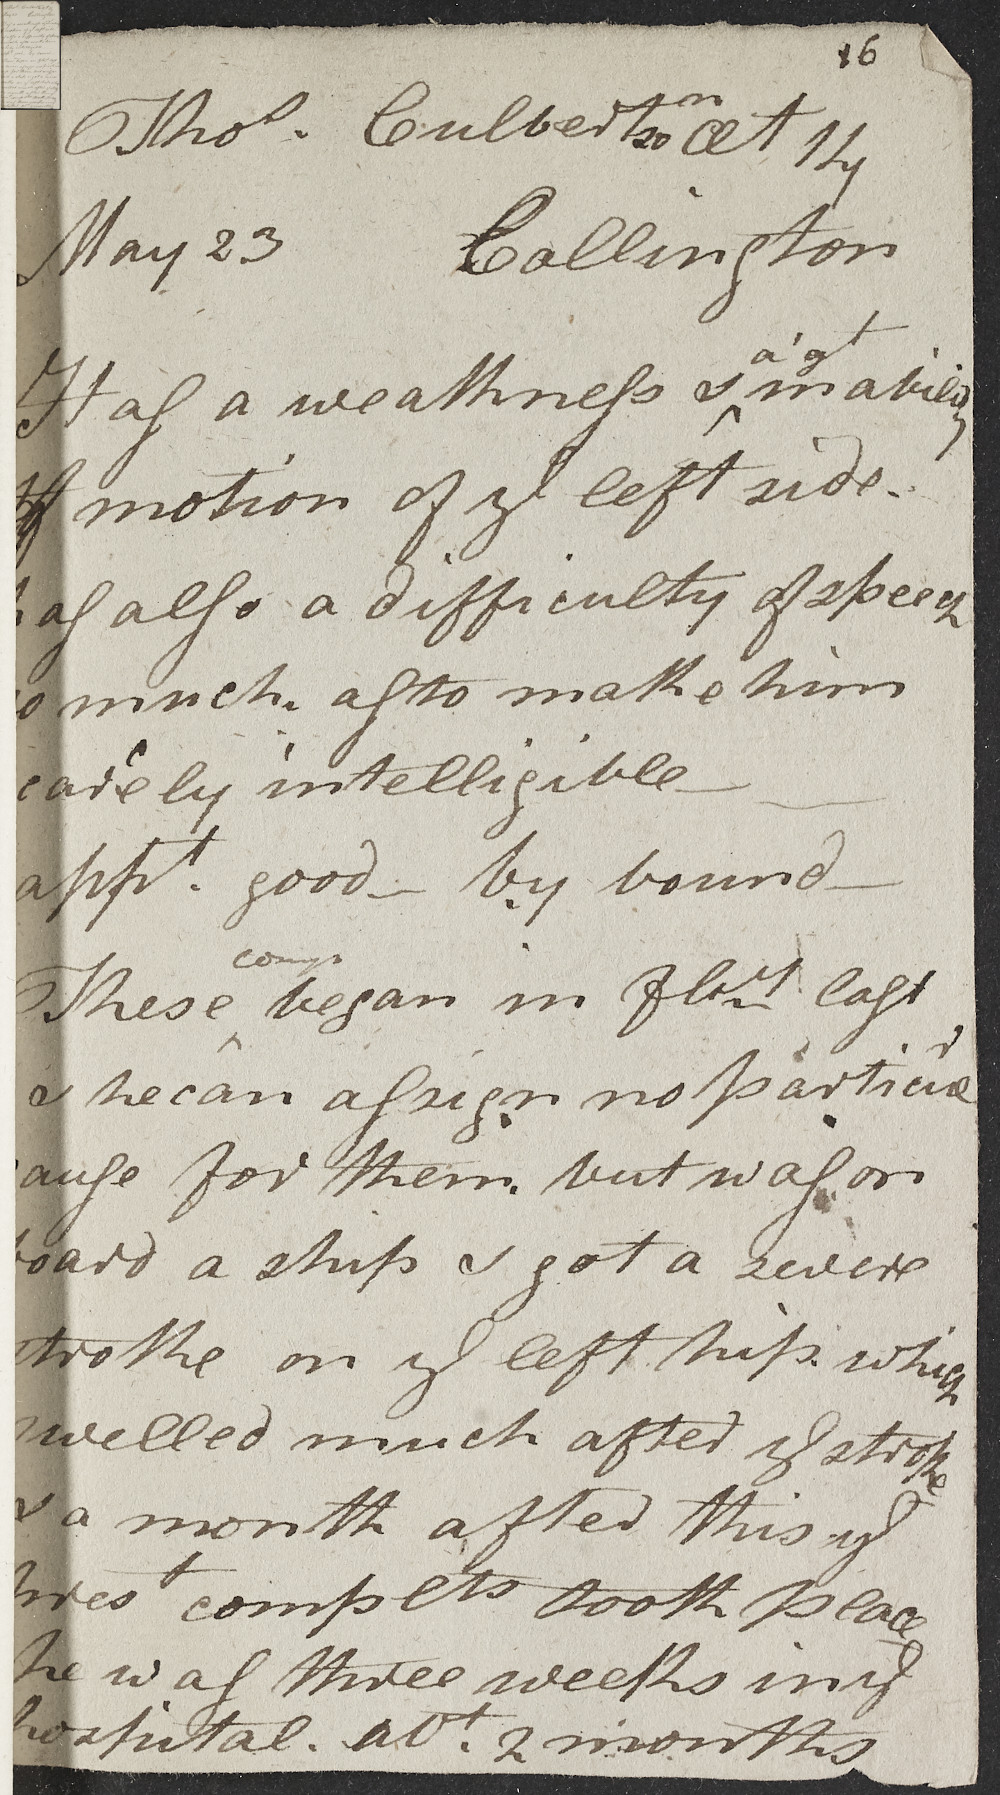 16
Thos. Culbertson Æt 14
May 23 Collington
Has a weakness & a gt inability
of motion of ye left side.
has also a difficulty of speech
so much. as to make him
scarcely intelligible
appt. good by bound
These compts began in last
& he can assign no particulr
cause for them. but was on
board a ship & got a severe
stroke on ye left hip. which
swelled much after ye stroke
& a month after this ye
prest complts took place
he was three weeks in ye
hospital. abt. 2 months